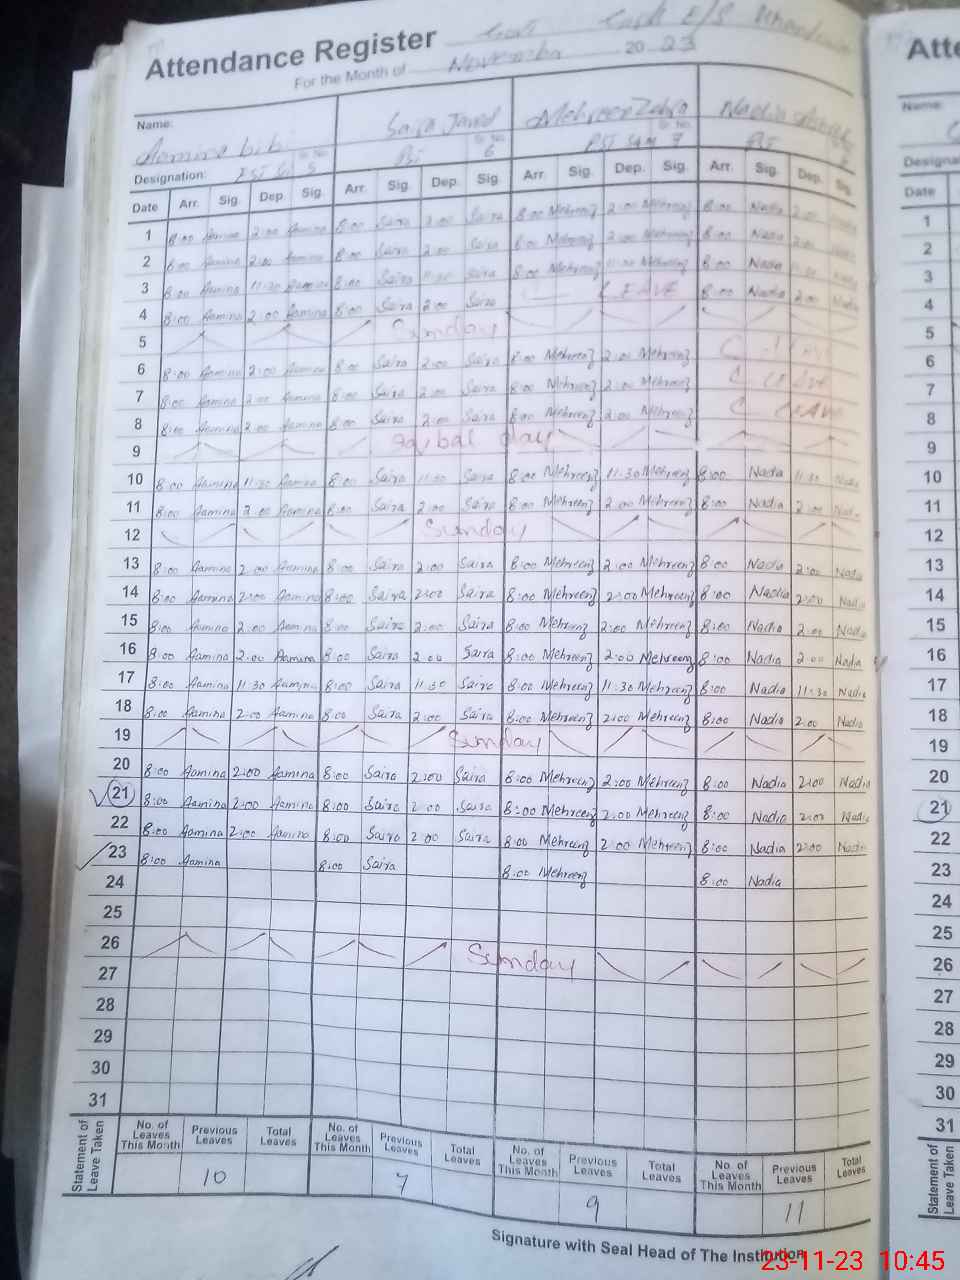 Attendance Register
For the Month of November 2023
Name: Aamina bibi Saira Javed Mehreen Zahra Nadia
Designation: PST 5 PST 6 PST 7 PST
Date Arr. Sig. Dep. Sig. Arr. Sig. Dep. Sig. Arr. Sig. Dep. Sig. Arr. Sig. Dep. Sig.
1 8:00 Aamina 2:00 Aamina 8:00 Saira 2:00 Saira 8:00 Mehreenz 2:00 Mehreenz 8:00 Nadia 2:00 Nadia
2 8:00 Aamina 2:00 Aamina 8:00 Saira 2:00 Saira 8:00 Mehreenz 2:00 Mehreenz 8:00 Nadia 2:00 Nadia
3 8:00 Aamina 11:30 Aamina 8:00 Saira 11:30 Saira 8:00 Mehreenz 11:00 Mehreenz 8:00 Nadia 11:30 Nadia
4 8:00 Aamina 2:00 Aamina 8:00 Saira 2:00 Saira LEAVE 8:00 Nadia 2:00 Nadia
5 Sunday
6 8:00 Aamina 2:00 Aamina 8:00 Saira 2:00 Saira 8:00 Mehreenz 2:00 Mehreenz C LEAVE
7 8:00 Aamina 2:00 Aamina 8:00 Saira 2:00 Saira 8:00 Mehreenz 2:00 Mehreenz C LEAVE
8 8:00 Aamina 2:00 Aamina 8:00 Saira 2:00 Saira 8:00 Mehreenz 2:00 Mehreenz C LEAVE
9 Iqbal day
10 8:00 Aamina 11:30 Aamina 8:00 Saira 11:30 Saira 8:00 Mehreenz 11:30 Mehreenz 8:00 Nadia 11:30 Nadia
11 8:00 Aamina 2:00 Aamina 8:00 Saira 2:00 Saira 8:00 Mehreenz 2:00 Mehreenz 8:00 Nadia 2:00 Nadia
12 Sunday
13 8:00 Aamina 2:00 Aamina 8:00 Saira 2:00 Saira 8:00 Mehreenz 2:00 Mehreenz 8:00 Nadia 2:00 Nadia
14 8:00 Aamina 2:00 Aamina 8:00 Saira 2:00 Saira 8:00 Mehreenz 2:00 Mehreenz 8:00 Nadia 2:00 Nadia
15 8:00 Aamina 2:00 Aamina 8:00 Saira 2:00 Saira 8:00 Mehreenz 2:00 Mehreenz 8:00 Nadia 2:00 Nadia
16 8:00 Aamina 2:00 Aamina 8:00 Saira 2:00 Saira 8:00 Mehreenz 2:00 Mehreenz 8:00 Nadia 2:00 Nadia
17 8:00 Aamina 11:30 Aamina 8:00 Saira 11:30 Saira 8:00 Mehreenz 11:30 Mehreenz 8:00 Nadia 11:30 Nadia
18 8:00 Aamina 2:00 Aamina 8:00 Saira 2:00 Saira 8:00 Mehreenz 2:00 Mehreenz 8:00 Nadia 2:00 Nadia
19 Sunday
20 8:00 Aamina 2:00 Aamina 8:00 Saira 2:00 Saira 8:00 Mehreenz 2:00 Mehreenz 8:00 Nadia 2:00 Nadia
21 8:00 Aamina 2:00 Aamina 8:00 Saira 2:00 Saira 8:00 Mehreenz 2:00 Mehreenz 8:00 Nadia 2:00 Nadia
22 8:00 Aamina 2:00 Aamina 8:00 Saira 2:00 Saira 8:00 Mehreenz 2:00 Mehreenz 8:00 Nadia 2:00 Nadia
23 8:00 Aamina 8:00 Saira 8:00 Mehreenz 8:00 Nadia
24
25
26 Sunday
27
28
29
30
31
Statement of Leave Taken
No. of Leaves This Month Previous Leaves Total Leaves No. of Leaves This Month Previous Leaves Total Leaves No. of Leaves This Month Previous Leaves Total Leaves No. of Leaves This Month Previous Leaves Total Leaves
10 7 9 11
Signature with Seal Head of The Institution
Atte
Name:
Designa
Date
1
2
3
4
5
6
7
8
9
10
11
12
13
14
15
16
17
18
19
20
21
22
23
24
25
26
27
28
29
30
31
Statement of
Leave Taken
23-11-23 10:45